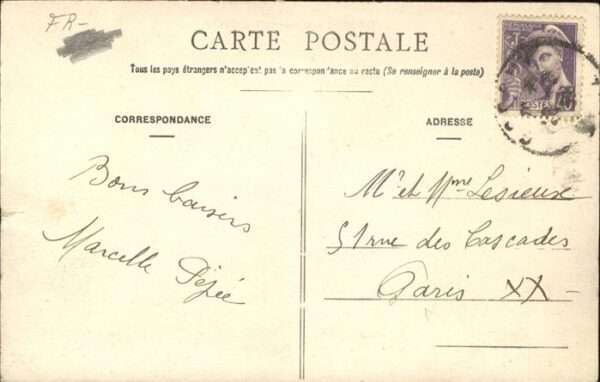 FR-
CARTE POSTALE
Tous les pays étrangers n'acceptent pas la correspondance au recto (Se renseigner à la poste)
CORRESPONDANCE
ADRESSE
Bons baisers
Marcelle
Mr et Mme Lesieux
51 rue des Cascades
Paris XX-
POSTES